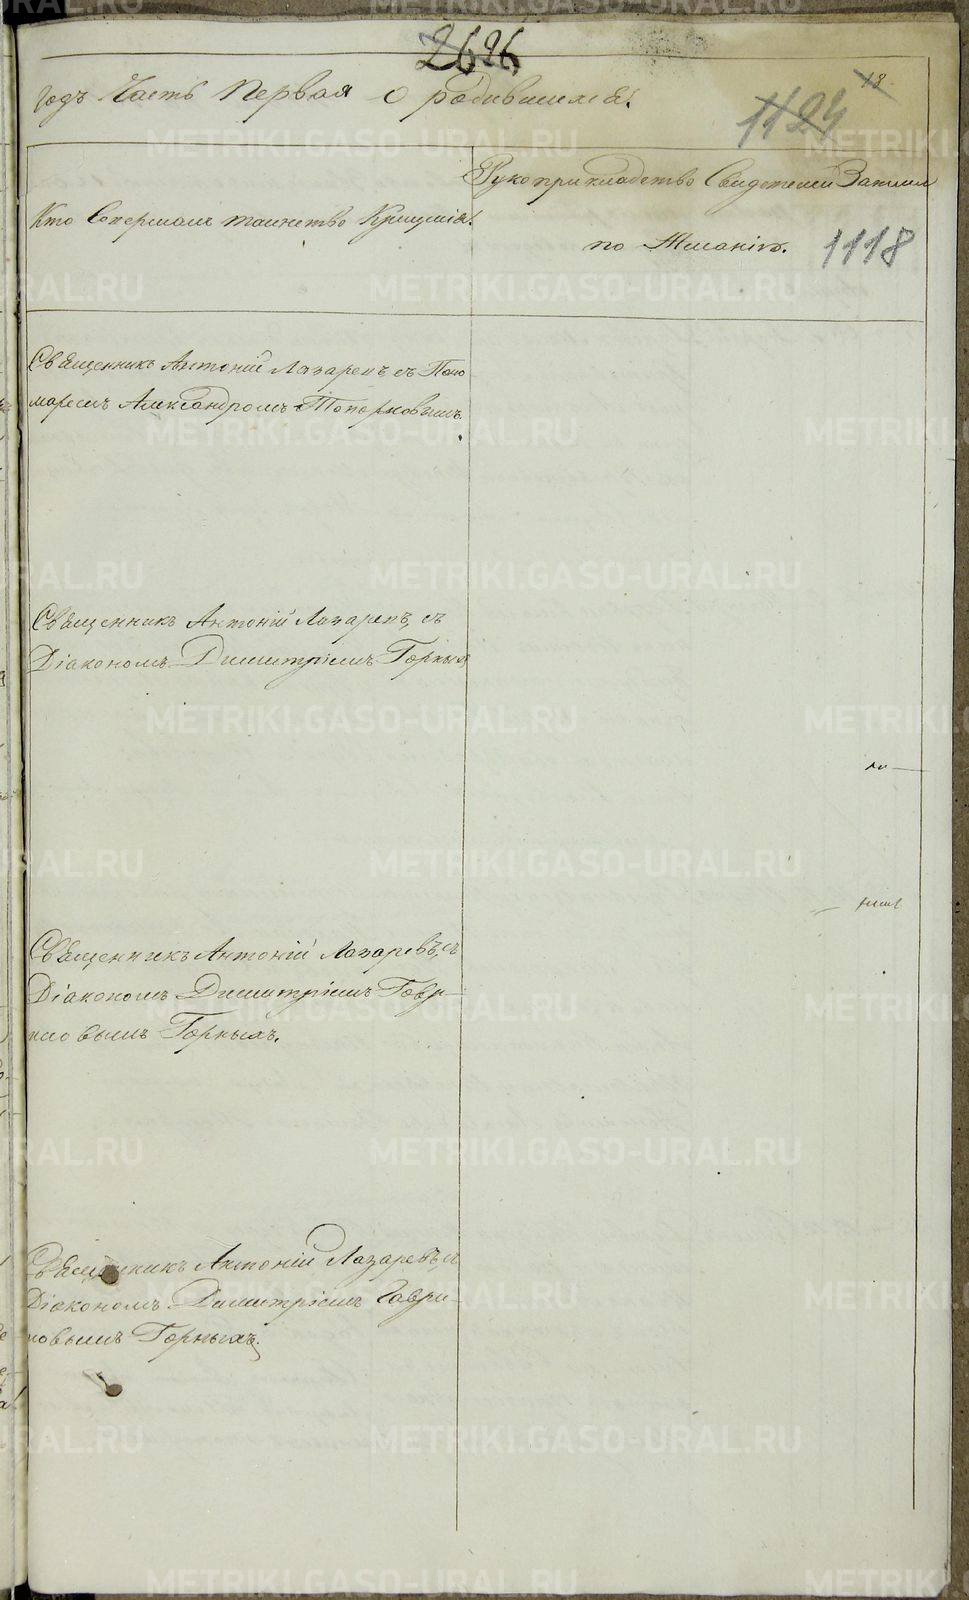 2626
годъ Часть Первая о родившихся.
18
1124
Рукоприкладство Свидетелей Записи
Кто Совершалъ таинство Крещенія.
по Желанію.
1118
Священникъ Антоній Лазаревъ съ Поно
маремъ Александромъ Топорковымъ.
Священникъ Антоній Лазаревъ, съ
Діакономъ Димитріемъ Горныхъ
Священникъ Антоній Лазаревъ, съ
Діакономъ Димитріемъ Гаври-
ловымъ Горныхъ.
Священникъ Антоній Лазаревъ съ
Діакономъ Димитріемъ Гаври-
ловымъ Горныхъ.
METRIKI.GASO-URAL.RU